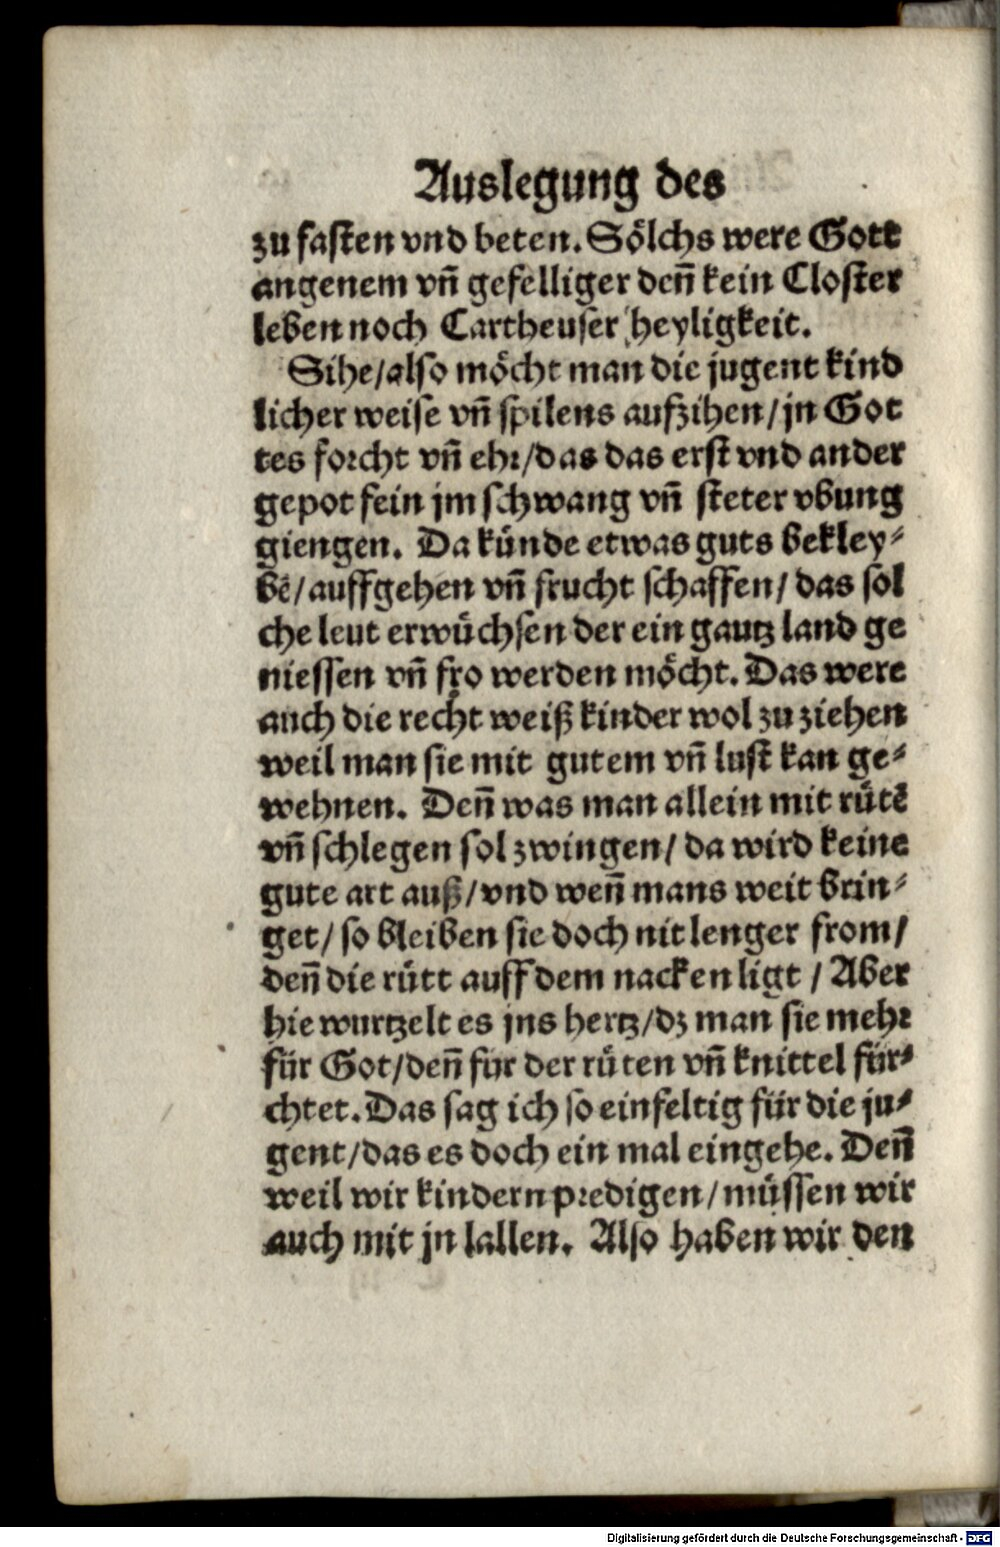 Auslegung des
zu fasten vnd beten. Sölchs were Gott
angenem vñ gefelliger deñ kein Closter
leben noch Cartheuser heyligkeit.
Sihe/also möcht man die jugent kind
licher weise vñ spilens aufzihen/jn Got
tes forcht vñ ehr/das das erst vnd ander
gepot fein jm schwang vñ steter vbung
giengen. Da künde etwas guts bekley⸗
bē/auffgehen vñ frucht schaffen/das sol
che leut erwüchsen der ein gautz land ge
niessen vñ fro werden möcht. Das were
auch die recht weiß kinder wol zu ziehen
weil man sie mit gutem vñ lust kan ge⸗
wehnen. Deñ was man allein mit rütē
vñ schlegen sol zwingen/da wird keine
gute art auß/vnd weñ mans weit brin⸗
get/so bleiben sie doch nit lenger from/
deñ die rütt auff dem nacken ligt/Aber
hie wurtzelt es jns hertz/dz man sie mehr
für Got/deñ für der rüten vñ knittel für⸗
chtet. Das sag ich so einfeltig für die ju⸗
gent/das es doch ein mal eingehe. Deñ
weil wir kindern predigen/müssen wir
auch mit jn lallen. Also haben wir den
Digitalisierung gefördert durch die Deutsche Forschungsgemeinschaft - DFG